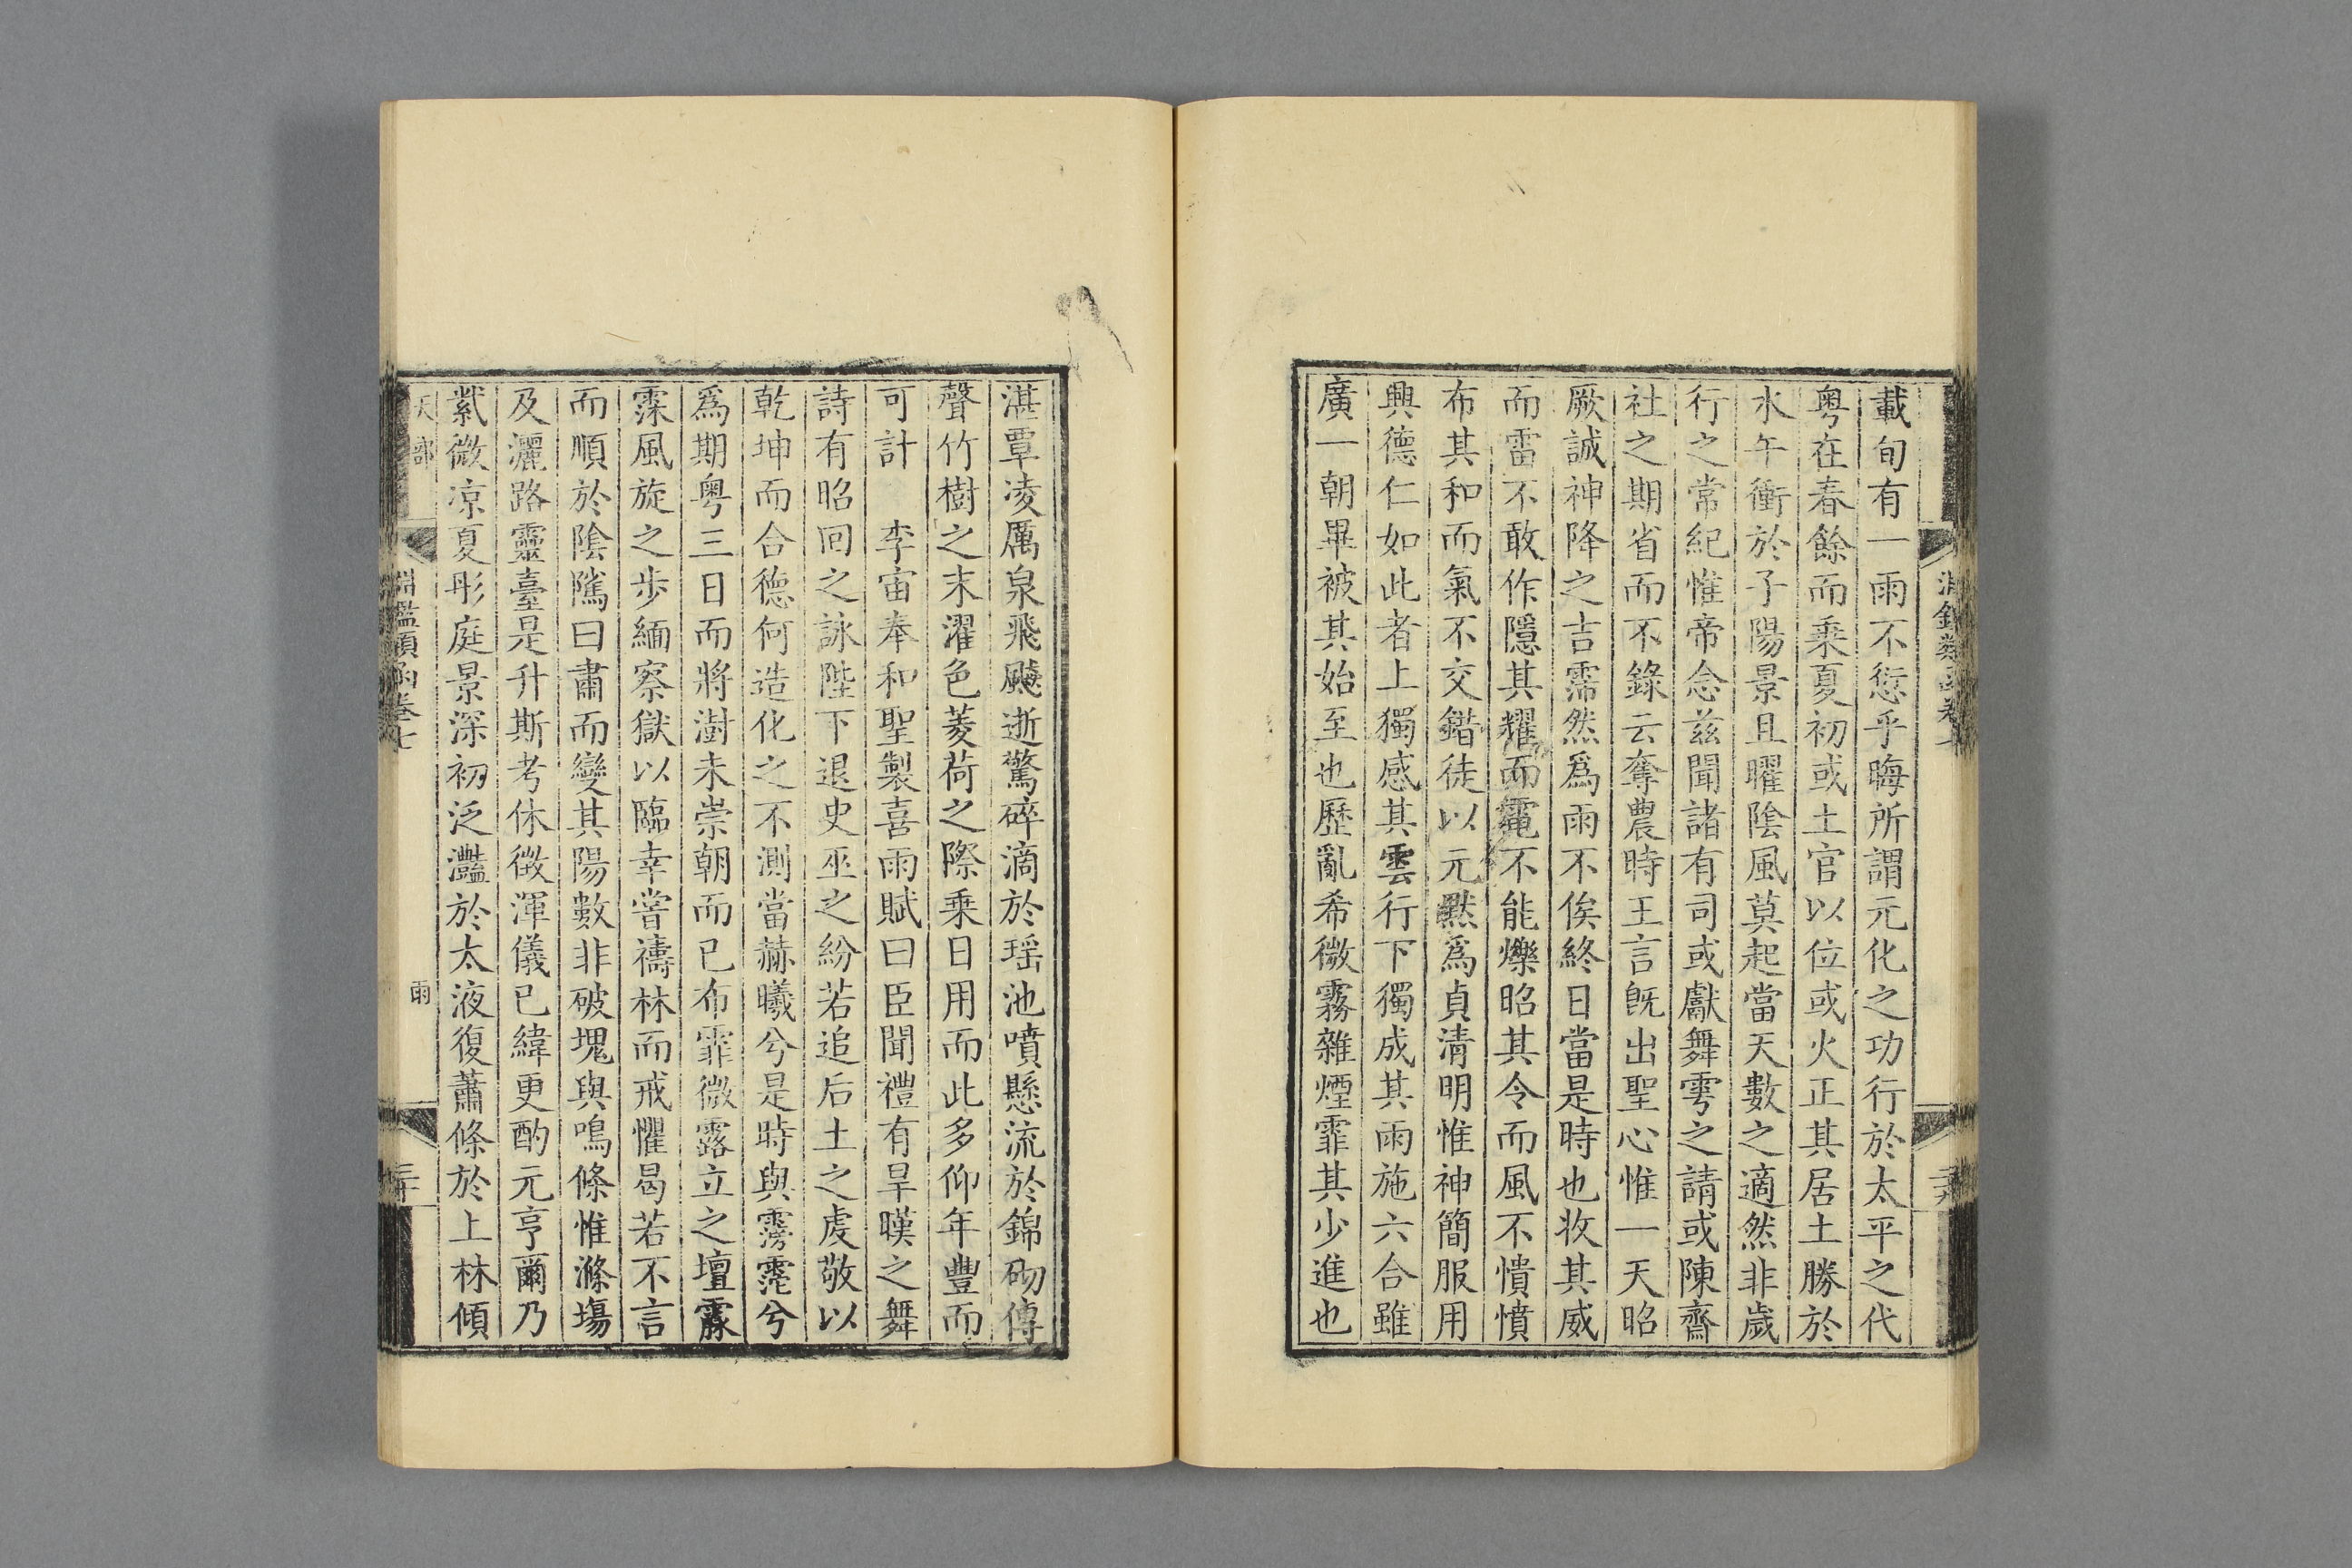 載旬有一雨不愆乎晦所謂元化之功行於太平之代
粵在春餘而乘夏初或土官以位或火正其居土勝於
水午衝於子陽景且曜陰風莫起當天數之適然非歲
行之常紀惟帝念茲聞諸有司或獻舞雩之請或陳齋
社之期省而不錄云奪農時王言旣出聖心惟一天昭
厥誠神降之吉霈然爲雨不俟終日當是時也收其威
而雷不敢作隱其耀而電不能爍昭其令而風不憒憤
布其和而氣不交錯徒以元黙爲貞清明惟神簡服用
興德仁如此者上獨感其雲行下獨成其雨施六合雖
廣一朝畢被其始至也歷亂希微霧雜煙霏其少進也
湛覃凌厲泉飛飈逝驚碎滴於瑶池噴懸流於錦砌傳
聲竹樹之末濯色菱荷之際乘日用而此多仰年豐而
可計　李宙奉和聖製喜雨賦曰臣聞禮有旱暵之舞
詩有昭回之詠陛下退史巫之紛若追后土之虔敬以
乾坤而合德何造化之不測當赫曦兮是時與霶霮兮
爲期粵三日而將澍未崇朝而已布霏微露立之壇霡
霂風旋之步緬察獄以臨幸嘗禱林而戒懼曷若不言
而順於陰隲曰肅而變其陽數非破塊與鳴條惟滌場
及灑路靈臺是升斯考休徵渾儀已緯更酌元亨爾乃
紫微凉夏彤庭景深初泛灩於太液復蕭條於上林傾
天部
淵鑑類函卷七
雨